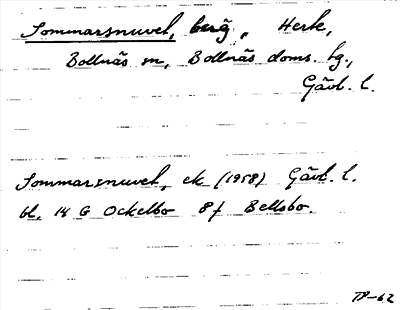 Sommarsnuvet, berg, Herte,
Bollnäs sn, Bollnäs doms. hg.,
Gävl. l.
Sommarsnuvet, ek (1958) Gävl. l.
bl. 14 G Ockelbo 8 f Bellsbo.
TP-62